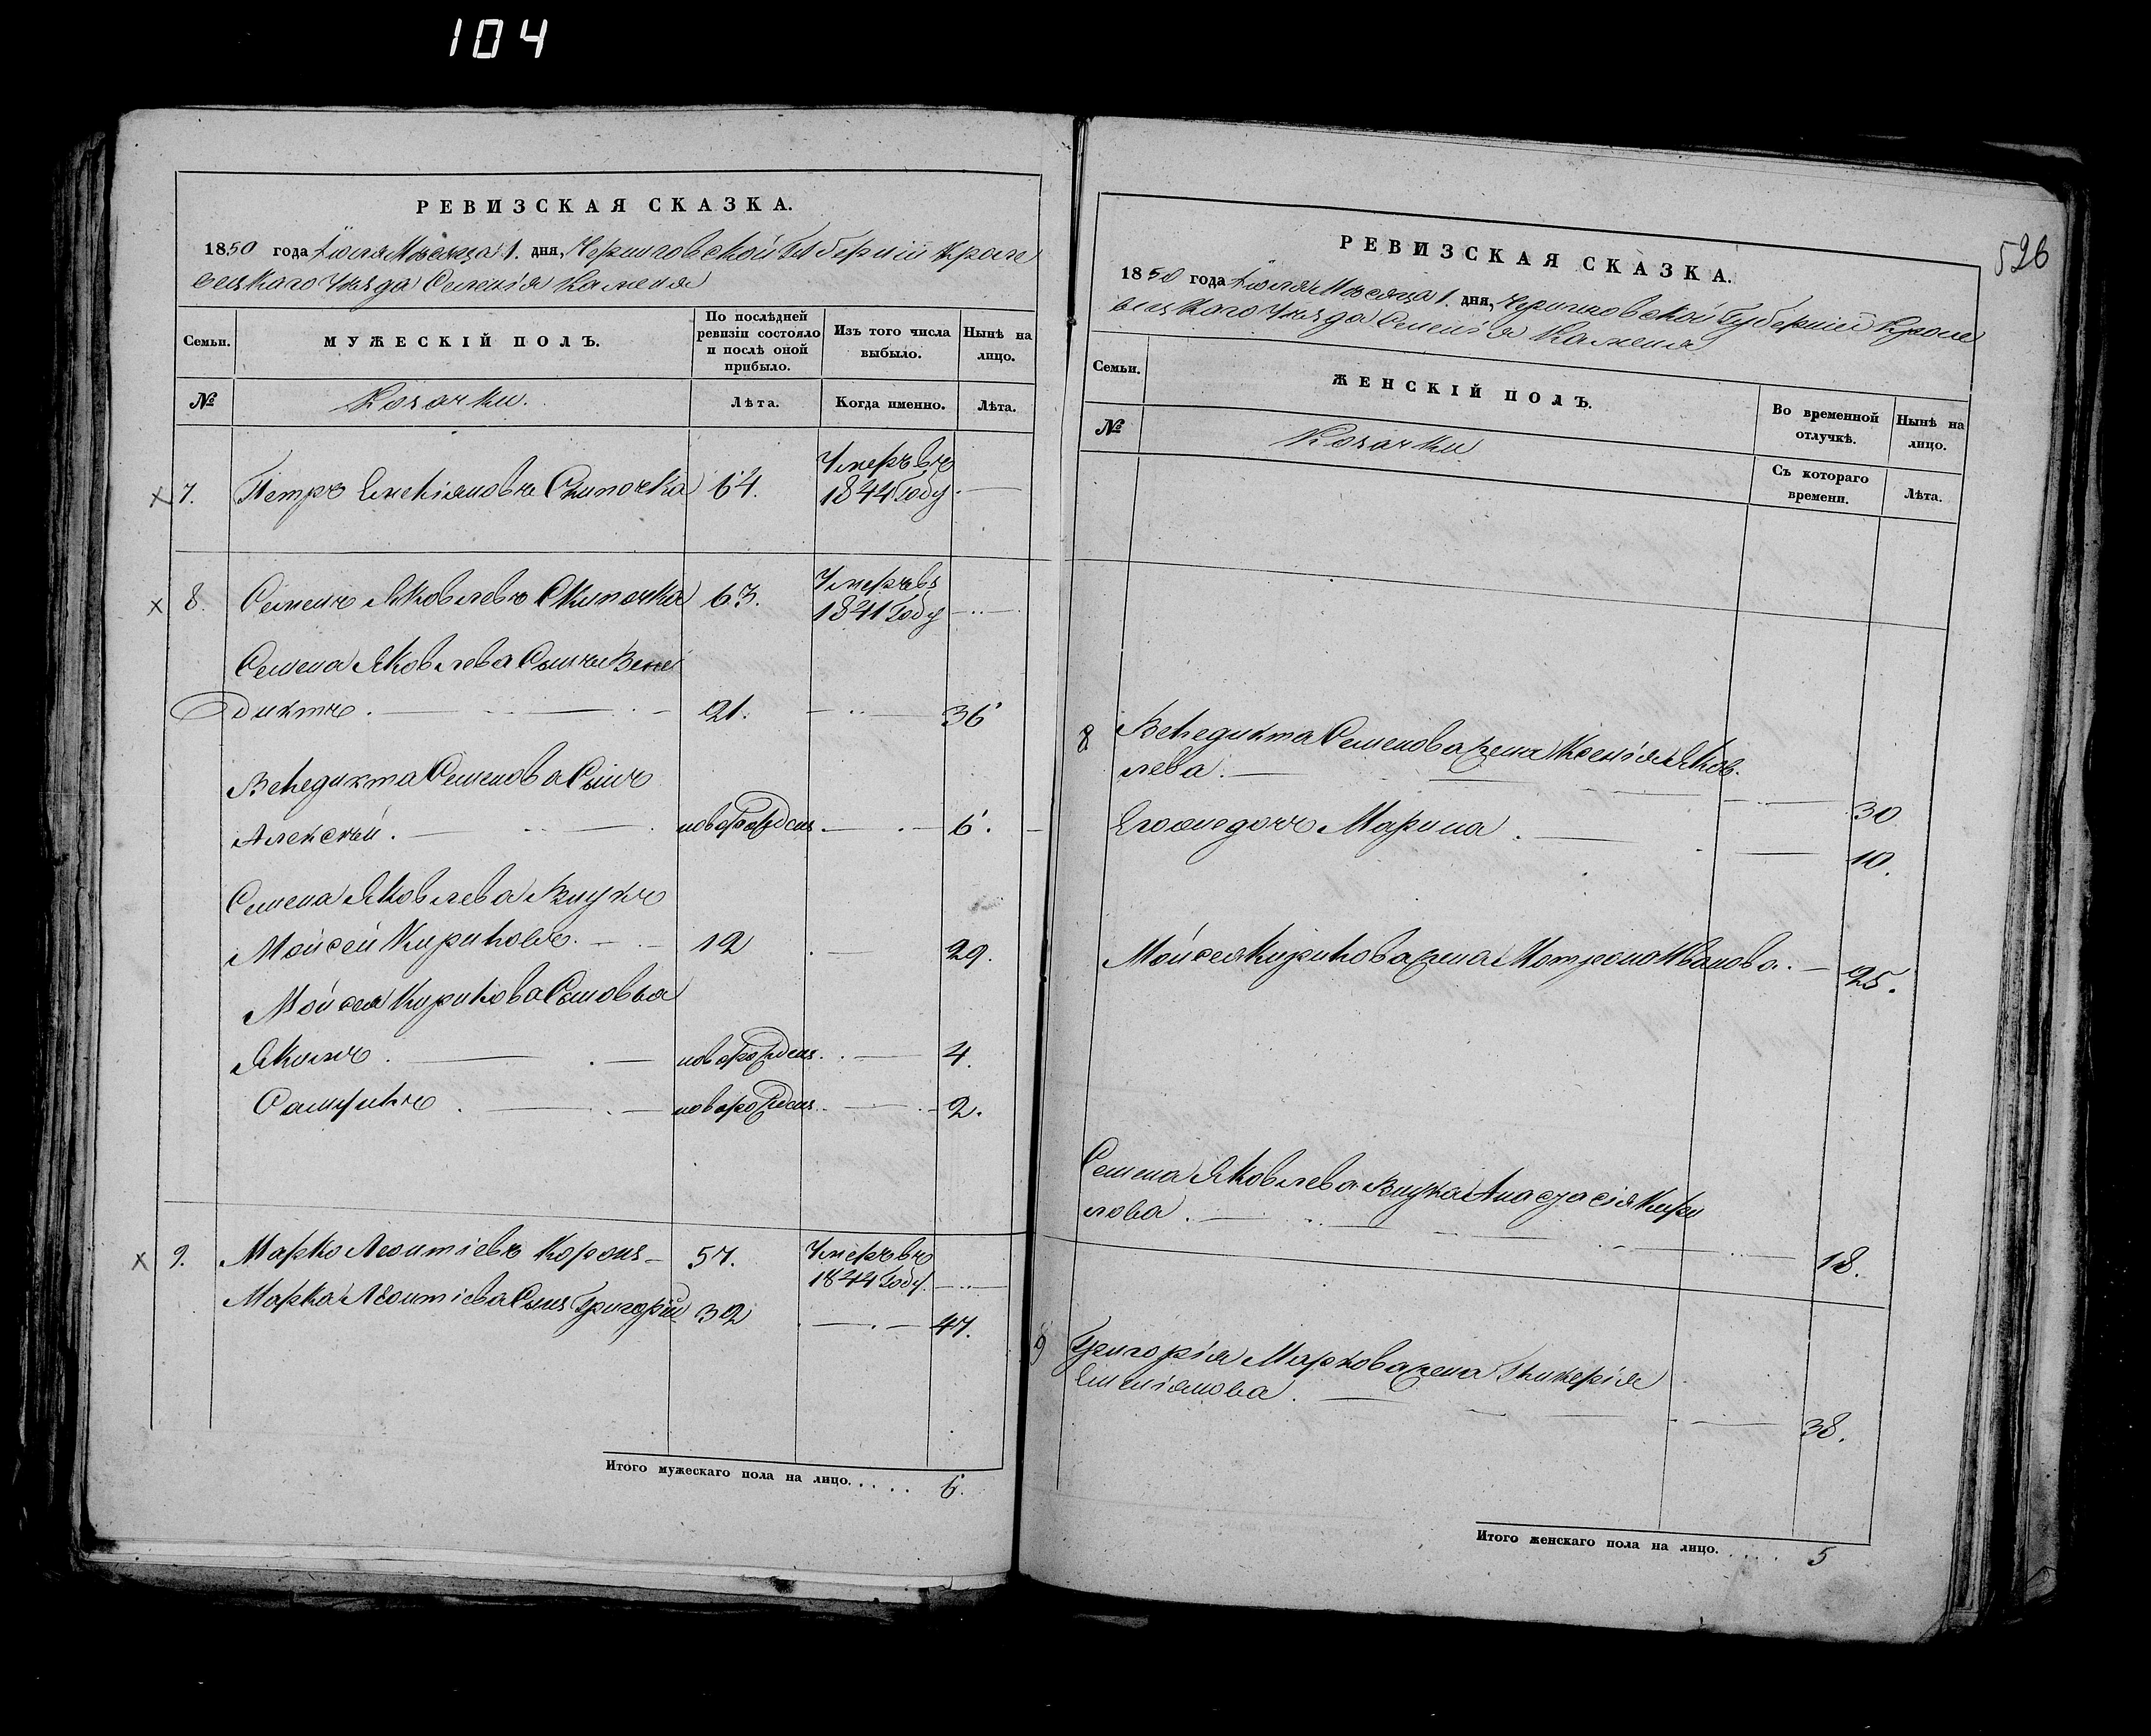 104
РЕВИЗСКАЯ СКАЗКА.
1850 года Июля Месяца 1. дня, Черниговской Губернии Кроле
вецкаго Уезда Селенія Каменя
Семьи.
МУЖЕСКІЙ ПОЛЪ.
По послѣдней ревизіи состояло и послѣ оной прибыло.
Изъ того числа выбыло.
Нынѣ на лицо.
№
Козачки.
Лѣта.
Когда именно.
Лѣта.
7. Петръ Скипочка 64. Умеръ въ 1844 Году
8. Семенъ Яковлевъ Скипочка 63. Умеръ въ 1841 Году
Семена Яковлева Сынъ Вене
диктъ. 21. 36
Венедикта Семенова Сынъ
Алексѣй. новорожденъ 6.
Семена Яковлева Внукъ
Мойсей Кириковъ. 12 29.
Мойсея Кирикова Сыновья
Якимъ. новорожденъ 4.
новорожденъ 2.
9. Марко Леонтіевъ Коронъ 57. Умеръ въ 1844 Году
Марка Леонтіева Сынъ Григорій 32 47.
Итого мужескаго пола на лицо. 6.
526
РЕВИЗСКАЯ СКАЗКА.
1850 года Июля Месяца 1. дня, Черниговской Губернии Кроле
вецкаго Уезда Селенія Каменя
Семьи.
ЖЕНСКІЙ ПОЛЪ.
Во временной отлучкѣ.
Нынѣ на лицо.
№
Козачки
Съ котораго времени.
Лѣта.
8 Венедикта Семенова жена Ксенія Яков
лева. 30
Его дочь Марина. 10.
Мойсея Кирикова жена Мотрона Иванова. 25.
Семена Яковлева Внука Анастасія Кири
лова. 18.
9 Григорія Маркова жена Гликерія
Емельянова. 38.
Итого женскаго пола на лицо. 5